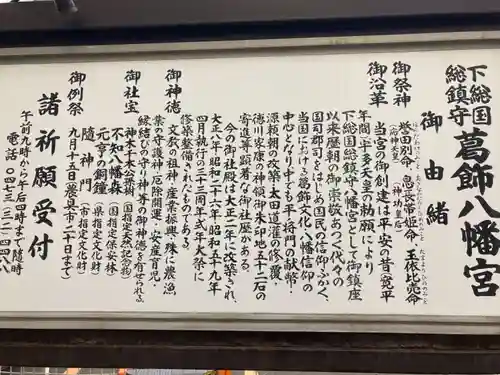 下総国
総鎮守
葛飾八幡宮
御由緒
御祭神
誉田別命
息長帯姫命
玉依比売命
(応神天皇)
(神功皇后)
御沿革
当宮の御創建は平安の昔、寛平
年間宇多天皇の勅願により
下総国総鎮守八幡宮として御鎮座
以来歴朝の御崇敬あつく代々の
国司郡司をはじめ国民の信仰ふかく、
当国における葛飾文化、八幡信仰の
中心となり中でも平将門の献幣・
源頼朝の改築・太田道灌の修覆・
徳川家康の神領御朱印地五十二石の
寄進等顕著な御社歴がある。
今の御社殿は大正二年に改築され、
大正八年昭和二十六年昭和五十九年
四月執行の三十三周年式年大祭に
修築整備されたものである。
御神徳
文教の祖神・産業振興・殊に農漁
業の守護神・厄除開運・安産育児・
縁結びの守り神等の御神徳を有せられる。
御社宝
神木千本公孫樹(国指定天然記念物)
不知八幡森(国指定保安林)
元亨の銅鐘(県指定文化財)
随神門(市指定文化財)
御例祭
九月十五日(農具市二十日まで)
諸祈願受付
午前九時から午后四時まで随時
電話〇四七三(三二)四四八八